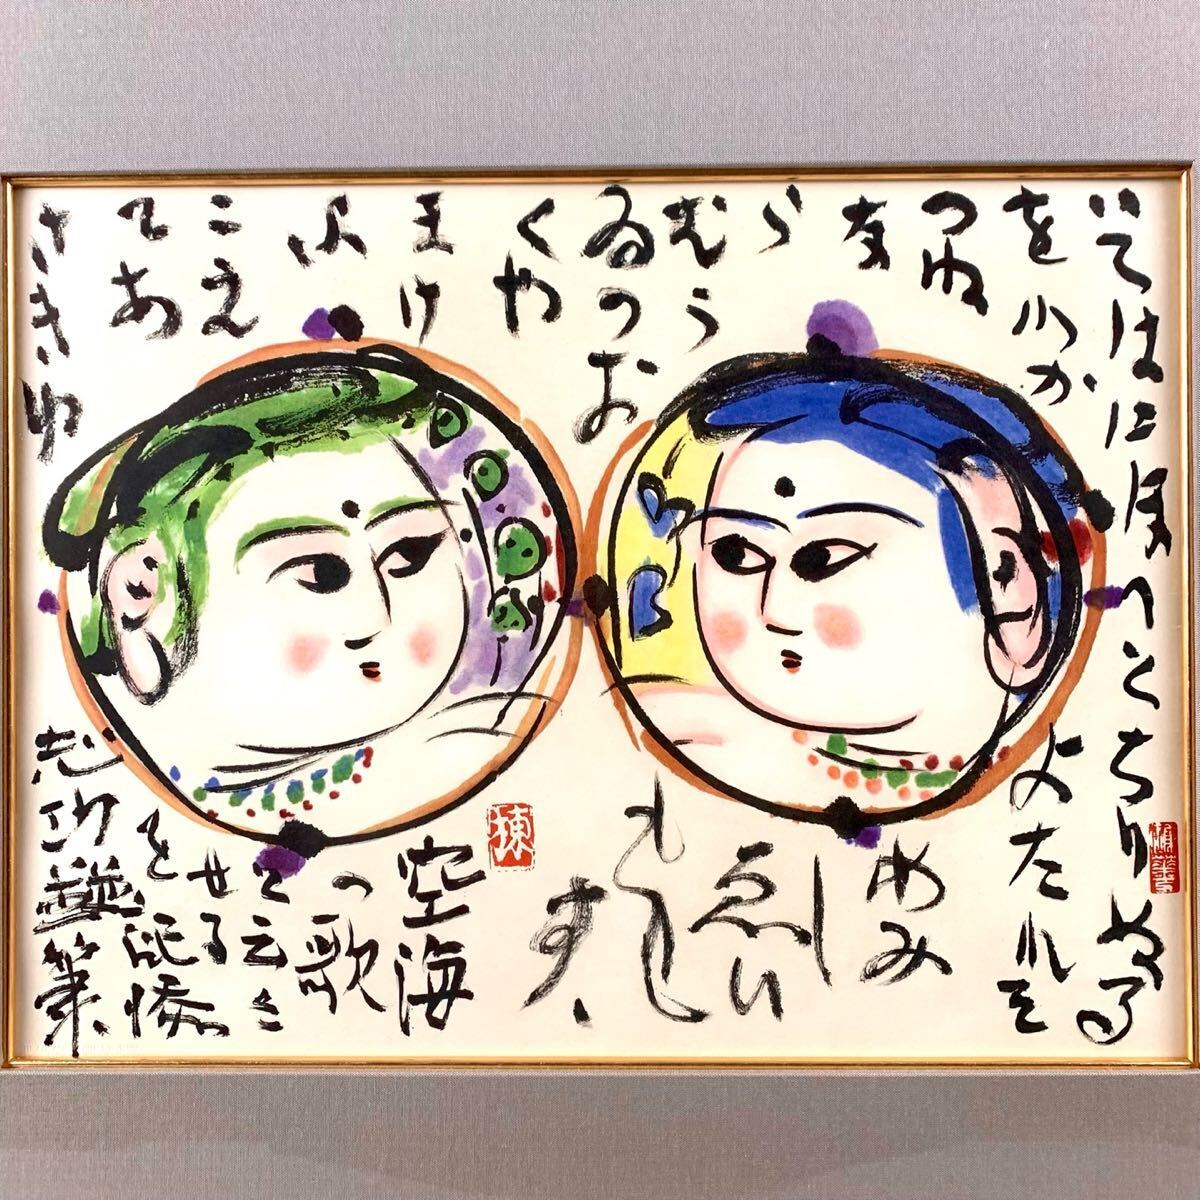 いろはにほへとちりぬる
をわか
よたれそ
つね
な
ら
むう
ゐのお
くや
まけ
ふ
こえ
てあ
さきゆ
めみ
し
ゑひ
もせ
す、
空海
の歌
と云
せる
を
志功謹筆
棟